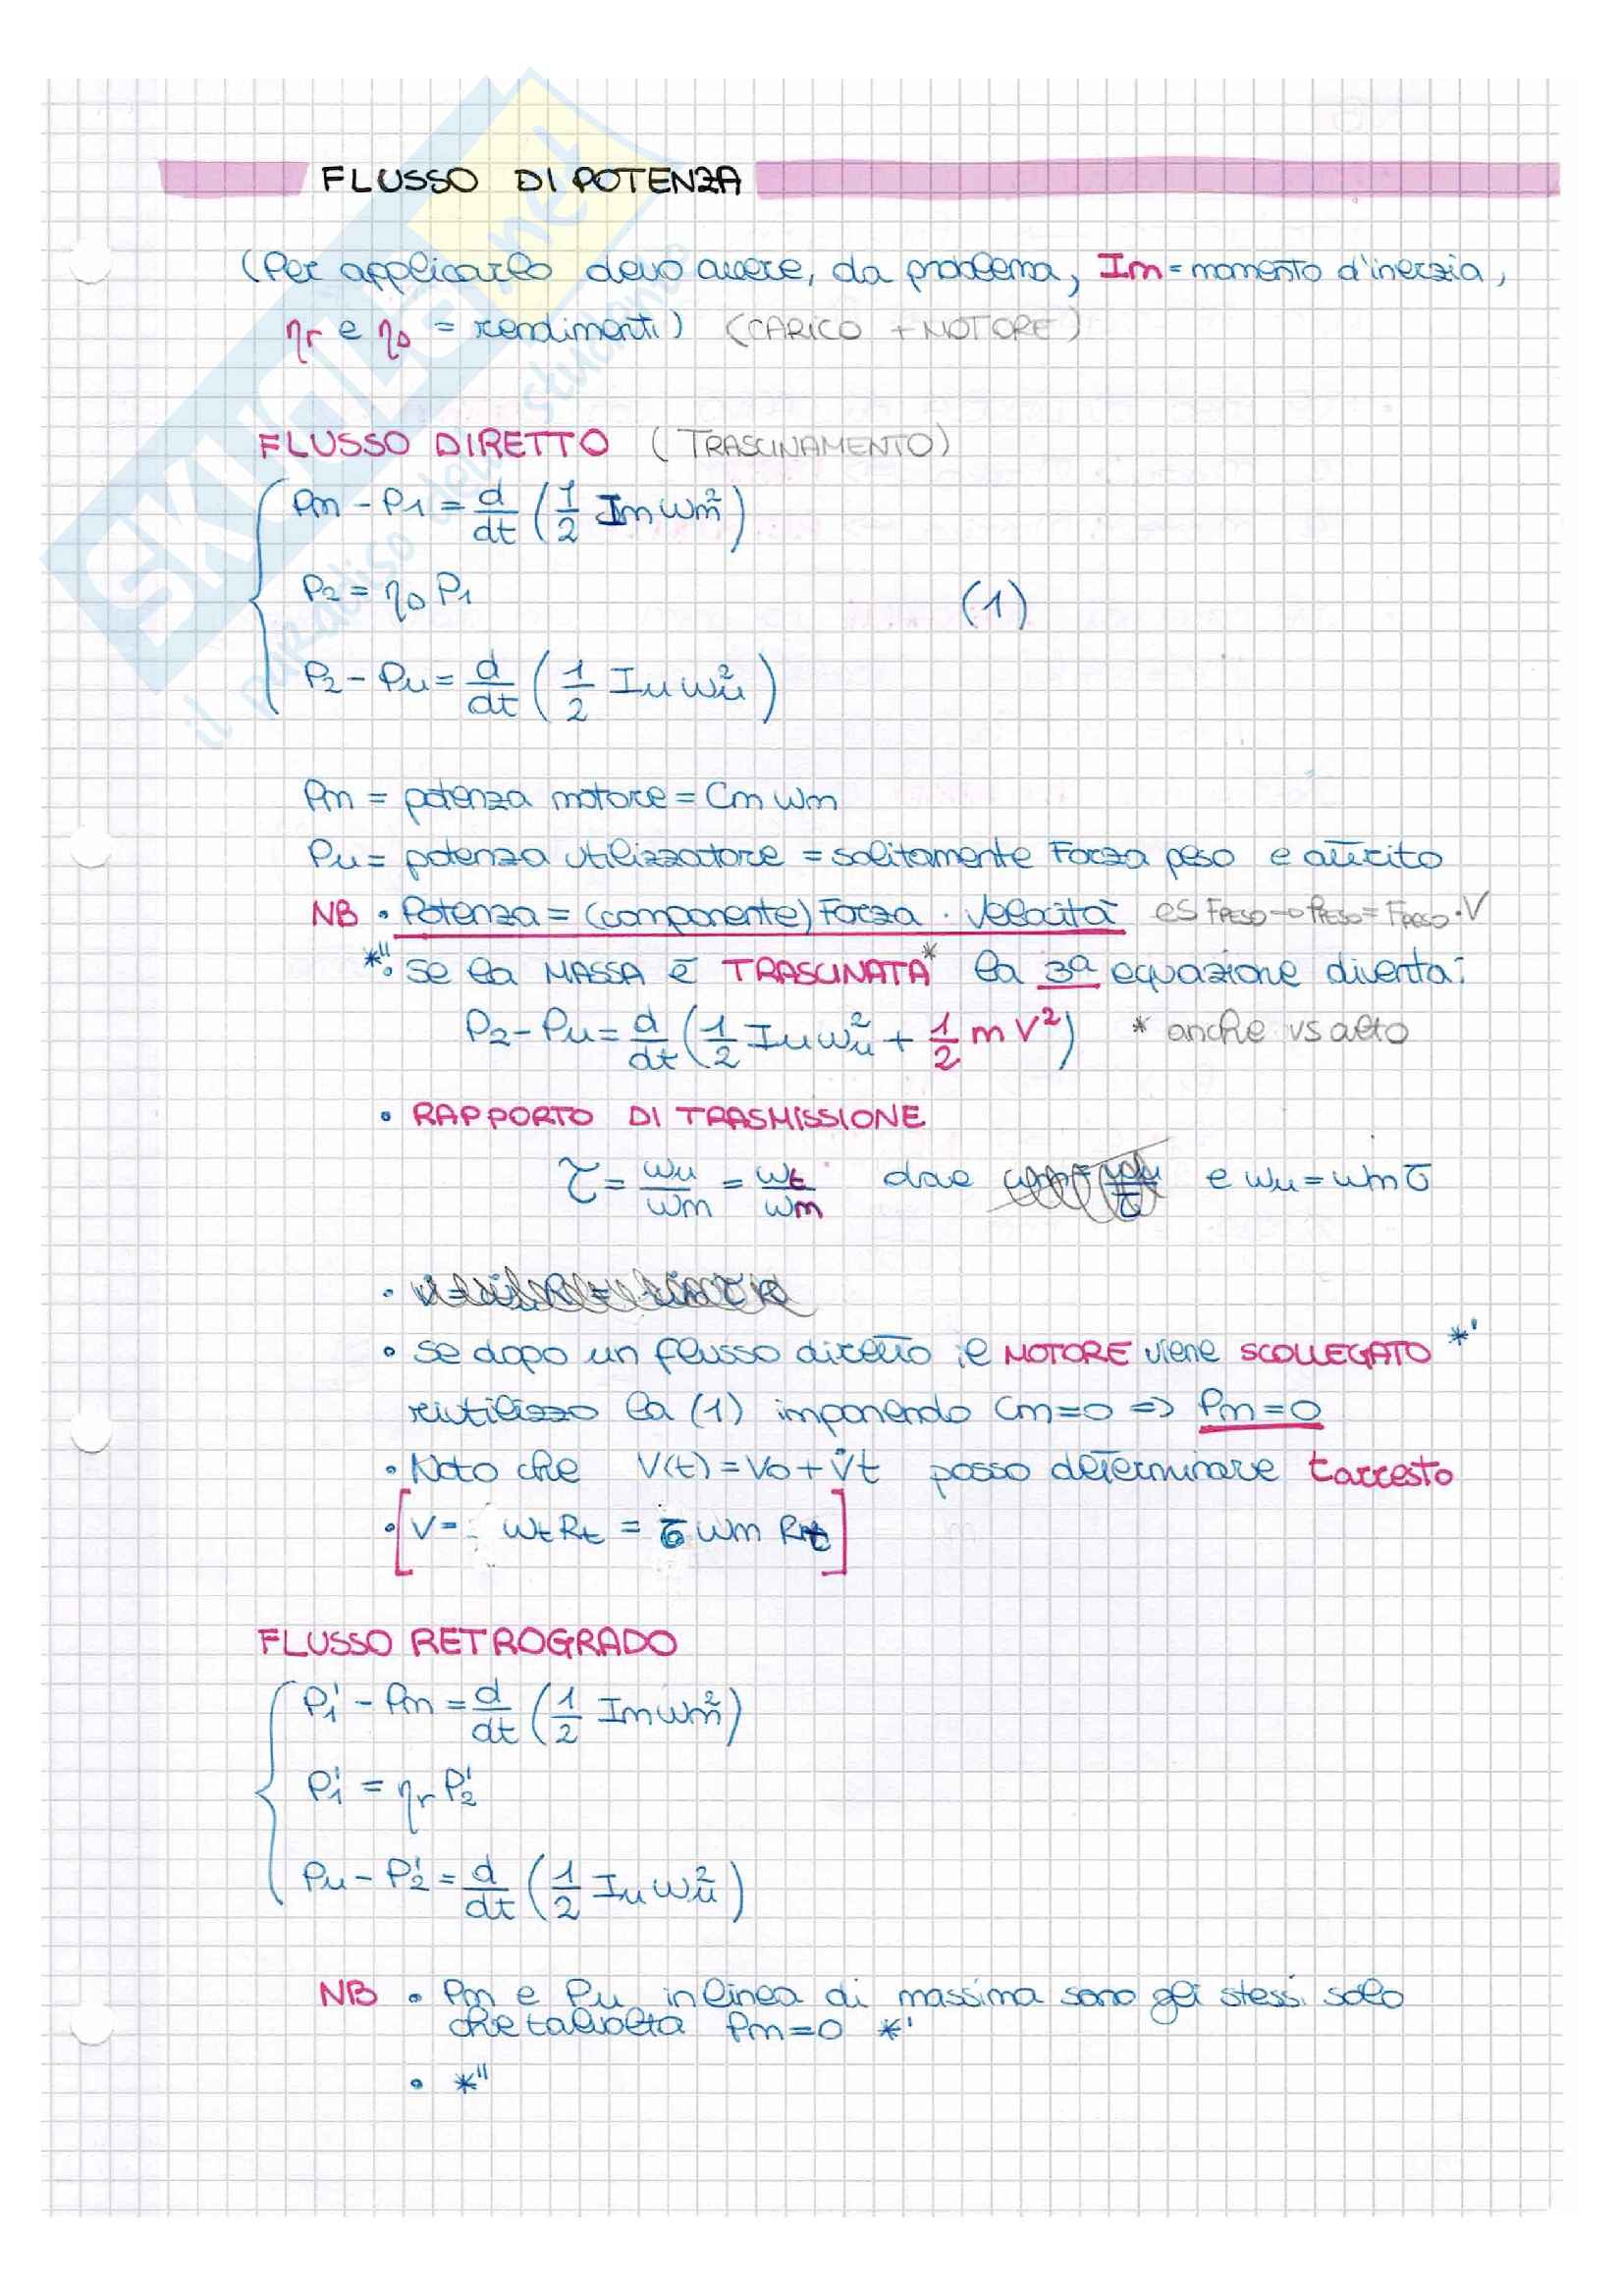 FLUSSO DI POTENZA
(Per applicarlo devo avere, da problema, Im = momento d'inerzia,
ηr e ηD = rendimenti) (CARICO + MOTORE)
FLUSSO DIRETTO (TRASCINAMENTO)
Pm - P1 = d/dt (1/2 Im ωm²)
P2 = ηD P1 (1)
P2 - Pu = d/dt (1/2 Iu ωu²)
Pm = potenza motore = Cm ωm
Pu = potenza utilizzatore = solitamente Forza peso e attrito
NB • Potenza = (componente) Forza · Velocità es FPESO → PPESO = FPESO · V
*'' • Se la MASSA è TRASCINATA* la 3ª equazione diventa:
P2 - Pu = d/dt (1/2 Iu ωu² + 1/2 m V²) * anche vs alto
• RAPPORTO DI TRASMISSIONE
τ = ωu/ωm = ωt/ωm da e ωu = ωm τ
•
• Se dopo un flusso diretto il MOTORE viene SCOLLEGATO *'
riutilizzo la (1) imponendo Cm=0 => Pm=0
• Noto che V(t) = V0 + V̇t posso determinare tarresto
• [V = ωt Rt = τ ωm Rt]
FLUSSO RETROGRADO
P1' - Pm = d/dt (1/2 Im ωm²)
P1' = ηr P2'
Pu - P2' = d/dt (1/2 Iu ωu²)
NB • Pm e Pu in linea di massima sono gli stessi solo
che talvolta Pm=0 *'
• *''
SKUOLA.net
il paradiso dello studente